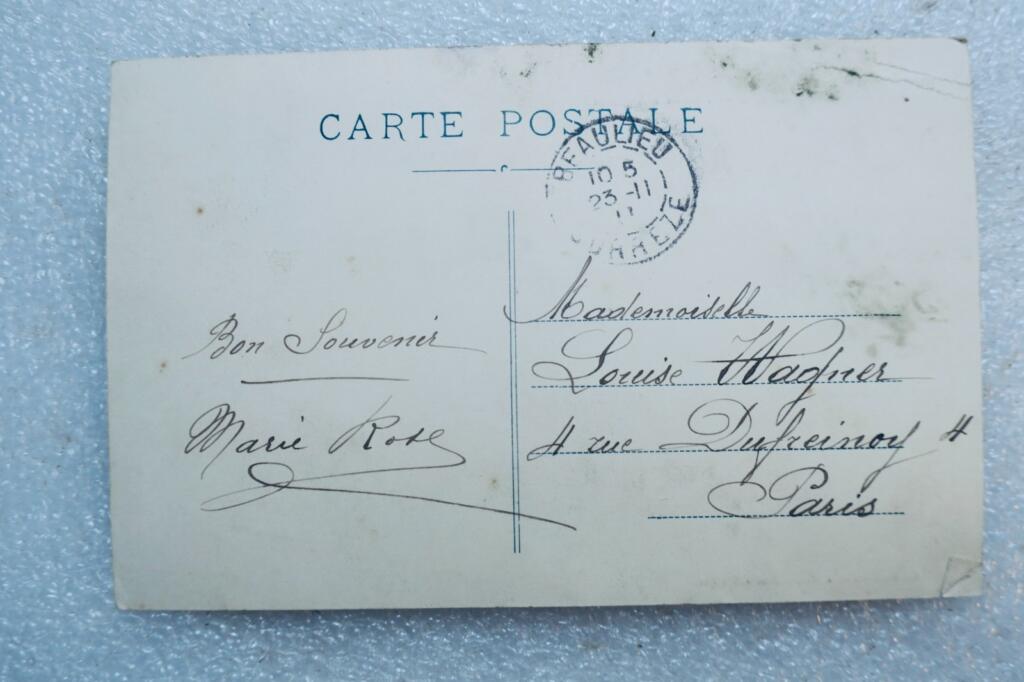 CARTE POSTALE
BEAULIEU
10 5
23 -11
11
CORREZE
Bon Souvenir
Marie Rose
Mademoiselle
Louise Wagner
4 rue Dufreinoy 4
Paris